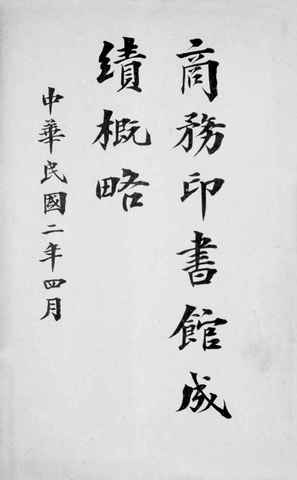 商務印書館成
績概略
中華民國二年四月